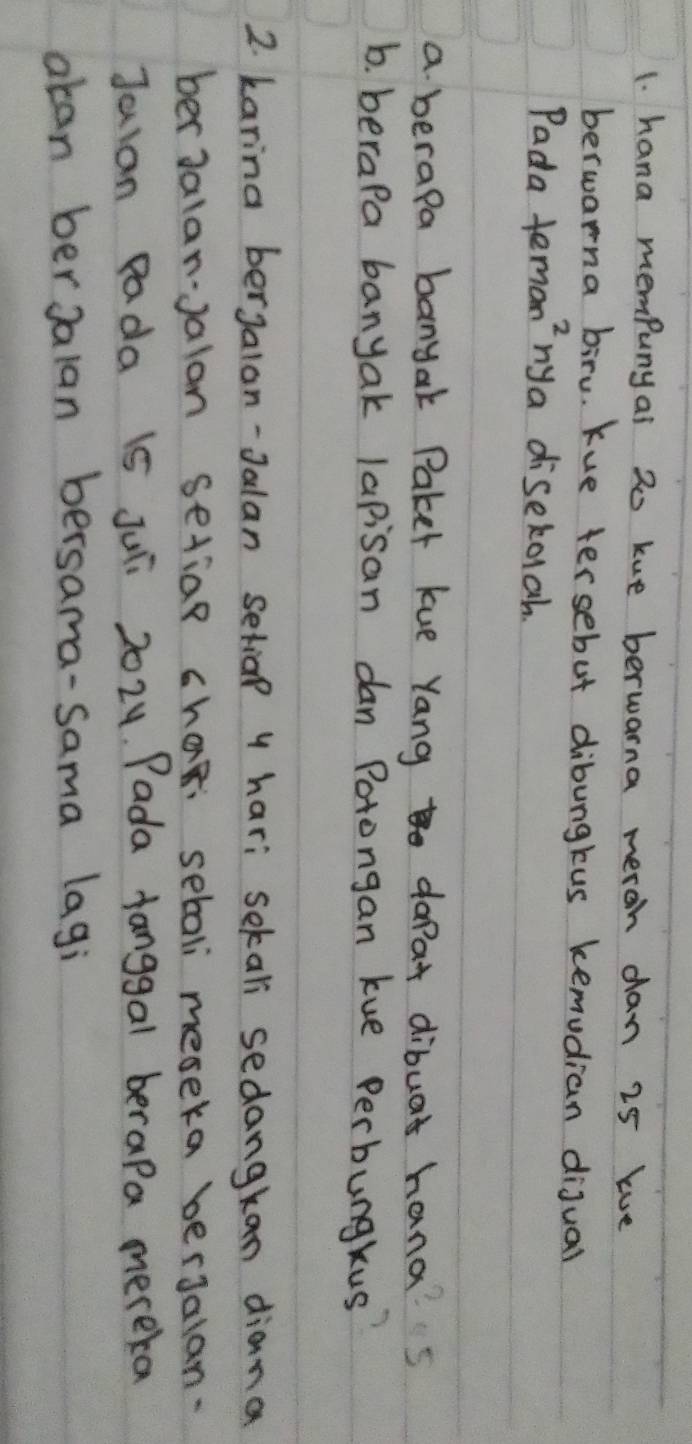 1. hana mempunyai 20 kue berwarna merah dan 25 kue
berwarna biru. kue tersebut dibungkus kemudian dijual
Pada teman²nya disekolah.
a. berapa banyak Paket kue Yang dapat dibuat hana? 5
b. berapa banyak lapisan dan Potongan kue Perbungkus?
2. karina berjalan-Jalan setiap 4 hari sekali sedangkan diana
berjalan-jalan setiap 6 hari sekali mereka berjalan-
Jalan Pada 15 Juli 2024. Pada tanggal berapa mereka
akan berjalan bersama-sama lagi